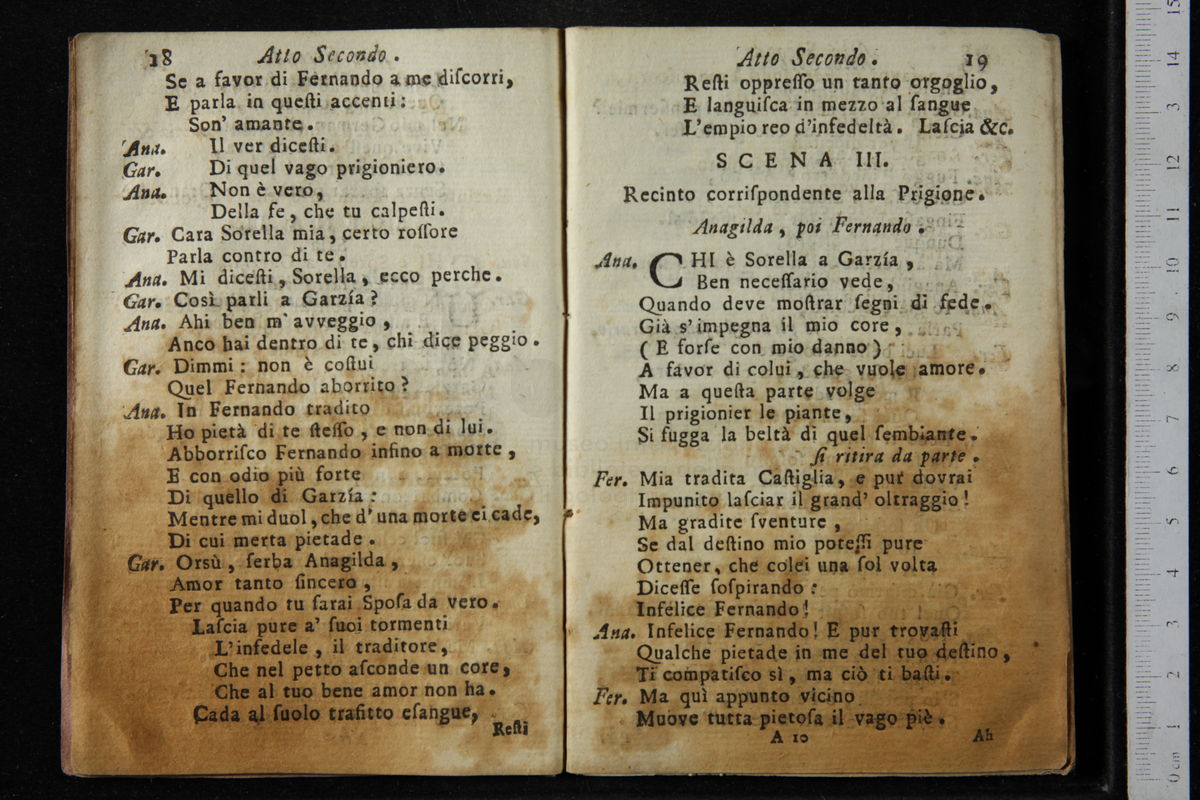 18 Atto Secondo.
Se a favor di Fernando a me diſcorri,
E parla in queſti accenti:
Son' amante.
Ana. Il ver diceſti.
Gar. Di quel vago prigioniero.
Ana. Non è vero,
Della fe, che tu calpeſti.
Gar. Cara Sorella mia, certo roſſore
Parla contro di te.
Ana. Mi diceſti, Sorella, ecco perche.
Gar. Così parli a Garzía?
Ana. Ahi ben m' avveggio,
Anco hai dentro di te, chi dice peggio.
Gar. Dimmi: non è coſtui
Quel Fernando aborrito?
Ana. In Fernando tradito
Ho pietà di te ſteſſo, e non di lui.
Abborriſco Fernando inſino a morte,
E con odio più forte
Di quello di Garzía:
Mentre mi duol, che d' una morte ei cade,
Di cui merta pietade.
Gar. Orsù, ſerba Anagilda,
Amor tanto ſincero,
Per quando tu ſarai Spoſa da vero.
Laſcia pure a' ſuoi tormenti
L'infedele, il traditore,
Che nel petto aſconde un core,
Che al tuo bene amor non ha.
Cada al ſuolo trafitto eſangue,
Reſti
Atto Secondo. 19
Reſti oppreſſo un tanto orgoglio,
E languiſca in mezzo al ſangue
L'empio reo d'infedeltà. Laſcia &c.
SCENA III.
Recinto corriſpondente alla Prigione.
Anagilda, poi Fernando.
Ana. CHI è Sorella a Garzía,
Ben neceſſario vede,
Quando deve moſtrar ſegni di fede.
Già s'impegna il mio core,
(E forſe con mio danno)
A favor di colui, che vuole amore.
Ma a queſta parte volge
Il prigionier le piante,
Si fugga la beltà di quel ſembiante.
ſi ritira da parte.
Fer. Mia tradita Caſtiglia, e pur dovrai
Impunito laſciar il grand' oltraggio!
Ma gradite ſventure,
Se dal deſtino mio poteſſi pure
Ottener, che colei una ſol volta
Diceſſe ſoſpirando:
Infelice Fernando!
Ana. Infelice Fernando! E pur trovaſti
Qualche pietade in me del tuo deſtino,
Ti compatiſco sì, ma ciò ti baſti.
Fer. Ma quì appunto vicino
Muove tutta pietoſa il vago piè.
A 10 Ah
15
14
13
12
11
10
9
8
7
6
5
4
3
2
1
0 cm